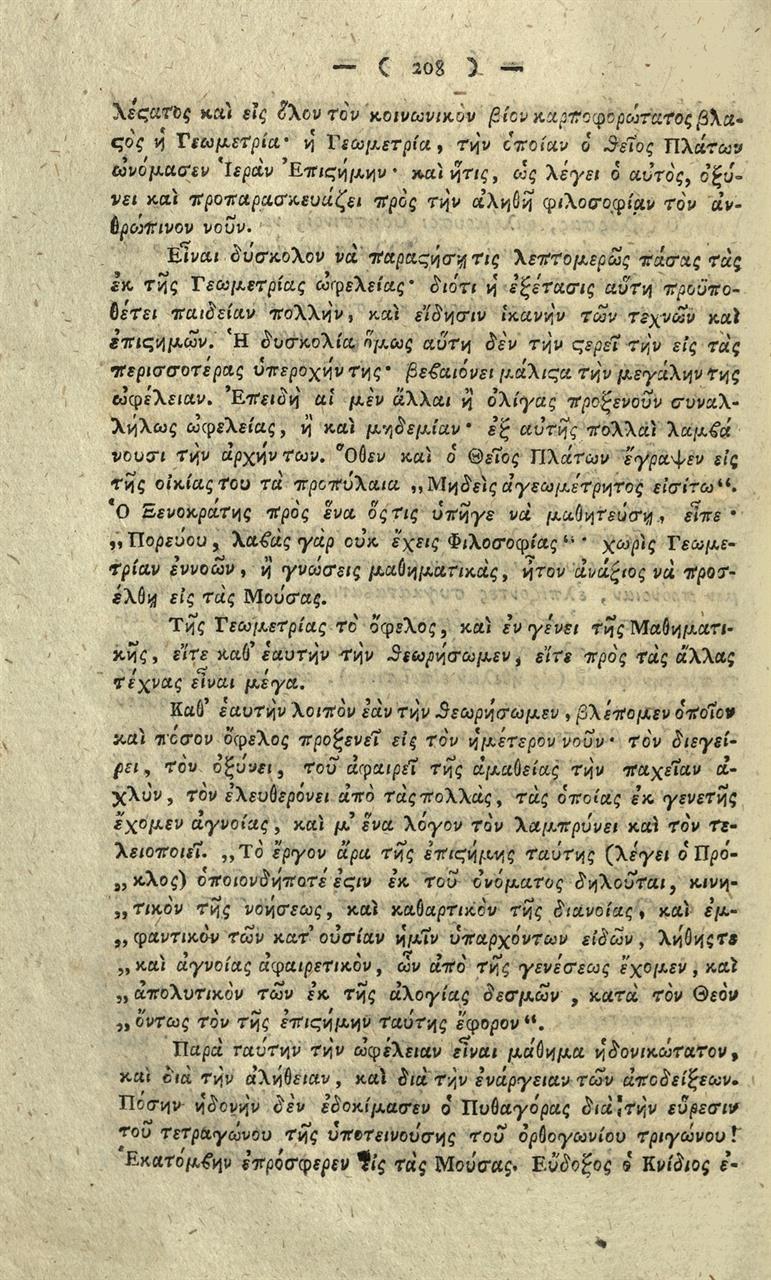 — ( 208 ) —
λέϛατος καὶ εἰς ὅλον τὸν κοινωνικὸν βίον καρποφορώτατος βλα-
ϛὸς ἡ Γεωμετρία· ἡ Γεωμετρία, τὴν ὁποίαν ὁ ϑεῖος Πλάτων
ὠνόμασεν Ἱερὰν Ἐπιϛήμην· καὶ ἥτις, ὡς λέγει ὁ αὐτὸς, ὀξύ-
νει καὶ προπαρασκευάζει πρὸς τὴν ἀληθῆ φιλοσοφίαν τὸν ἀν-
θρώπινον νοῦν.
Εἶναι δύσκολον νὰ παραϛήσῃ τις λεπτομερῶς πάσας τὰς
ἐκ τῆς Γεωμετρίας ὠφελείας· διότι ἡ ἐξέτασις αὕτη προϋπο-
θέτει παιδείαν πολλὴν, καὶ εἴδησιν ἱκανὴν τῶν τεχνῶν καὶ
ἐπιϛημῶν. Ἡ δυσκολία ὅμως αὕτη δὲν τὴν ϛερεῖ τὴν εἰς τὰς
περισσοτέρας ὑπεροχήν της· βεβαιόνει μάλιϛα τὴν μεγάλην της
ὠφέλειαν. Ἐπειδὴ αἱ μὲν ἄλλαι ἢ ὀλίγας προξενοῦν συναλ-
λήλως ὠφελείας, ἢ καὶ μηδεμίαν· ἐξ αὐτῆς πολλαὶ λαμβά
νουσι τὴν ἀρχήν των. Ὅθεν καὶ ὁ Θεῖος Πλάτων ἔγραψεν εἰς
τῆς οἰκίας του τὰ προπύλαια „Μηδεὶς ἀγεωμέτρητος εἰσίτω“.
Ὁ Ξενοκράτης πρὸς ἕνα ὅς τις ὑπῆγε νὰ μαθητεύσῃ, εἶπε·
„Πορεύου, λαβὰς γὰρ ουκ ἔχεις Φιλοσοφίας“· χωρὶς Γεωμε-
τρίαν ἐννοῶν, ἢ γνώσεις μαθηματικὰς, ἦτον ἀνάξιος νὰ προσ-
έλθῃ εἰς τὰς Μούσας.
Τῆς Γεωμετρίας τὸ ὄφελος, καὶ ἐν γένει τῆς Μαθηματι-
κῆς, εἴτε καθ’ ἑαυτὴν τὴν ϑεωρήσωμεν, εἴτε πρὸς τὰς ἄλλας
τέχνας εἶναι μέγα.
Καθ’ ἑαυτὴν λοιπὸν ἐὰν τὴν ϑεωρήσωμεν, βλέπομεν ὁποῖον
καὶ πόσον ὄφελος προξενεῖ εἰς τὸν ἡμέτερον νοῦν· τὸν διεγεί-
ρει, τὸν ὀξύνει, τοῦ ἀφαιρεῖ τῆς ἀμαθείας τὴν παχεῖαν ἀ-
χλὺν, τὸν ἐλευθερόνει ἀπὸ τὰς πολλὰς, τὰς ὁποίας ἐκ γενετῆς
ἔχομεν ἀγνοίας, καὶ μ’ ἕνα λόγον τὸν λαμπρύνει καὶ τὸν τε-
λειοποιεῖ. „Τὸ ἔργον ἄρα τῆς ἐπιϛήμης ταύτης (λέγει ὁ Πρό-
„κλος) ὁποιονδήποτέ ἐϛιν ἐκ τοῦ ὀνόματος δηλοῦται, κινη-
„τικὸν τῆς νοήσεως, καὶ καθαρτικὸν τῆς διανοίας, καὶ ἐμ-
„φαντικὸν τῶν κατ’ οὐσίαν ἡμῖν ὑπαρχόντων εἰδῶν, λήθης τε
„καὶ ἀγνοίας ἀφαιρετικὸν, ὧν ἀπὸ τῆς γενέσεως ἔχομεν, καὶ
„ἀπολυτικὸν τῶν ἐκ τῆς ἀλογίας δεσμῶν, κατὰ τὸν Θεὸν
„ὄντως τὸν τῆς ἐπιϛήμην ταύτης ἔφορον“.
Παρὰ ταύτην τὴν ὠφέλειαν εἶναι μάθημα ἡδονικώτατον,
καὶ διὰ τὴν ἀλήθειαν, καὶ διὰ τὴν ἐνάργειαν τῶν ἀποδείξεων.
Πόσην ἡδονὴν δὲν ἐδοκίμασεν ὁ Πυθαγόρας διὰ τὴν εὕρεσιν
τοῦ τετραγώνου τῆς ὑποτεινούσης τοῦ ὀρθογωνίου τριγώνου!
Ἑκατόμβην ἐπρόσφερεν εἰς τὰς Μούσας. Εὔδοξος ὁ Κνίδιος ἐ-